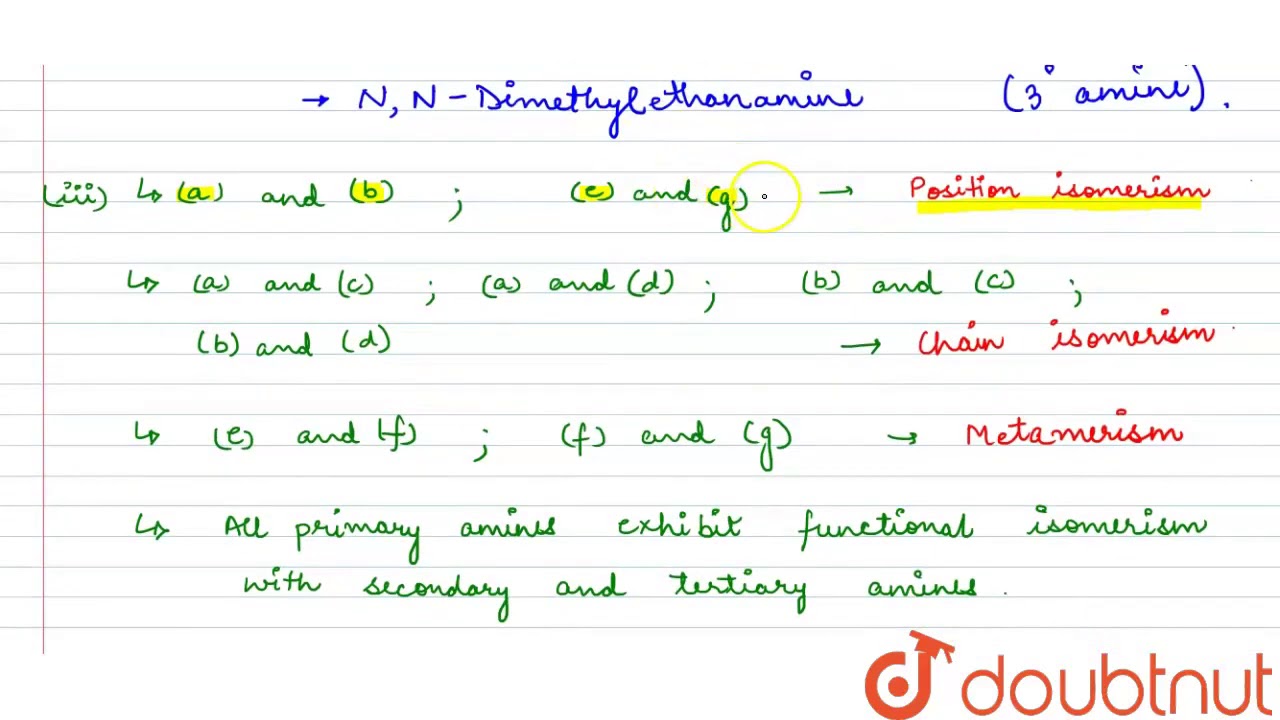 → N, N - Dimethylethanamine (3° amine).
(iii) ↳ (a) and (b) ; (e) and (g) → Position isomerism
↳ (a) and (c) ; (a) and (d) ; (b) and (c) ;
(b) and (d) → Chain isomerism
↳ (e) and (f) ; (f) and (g) → Metamerism
↳ All primary amines exhibit functional isomerism
with secondary and tertiary amines.
doubtnut